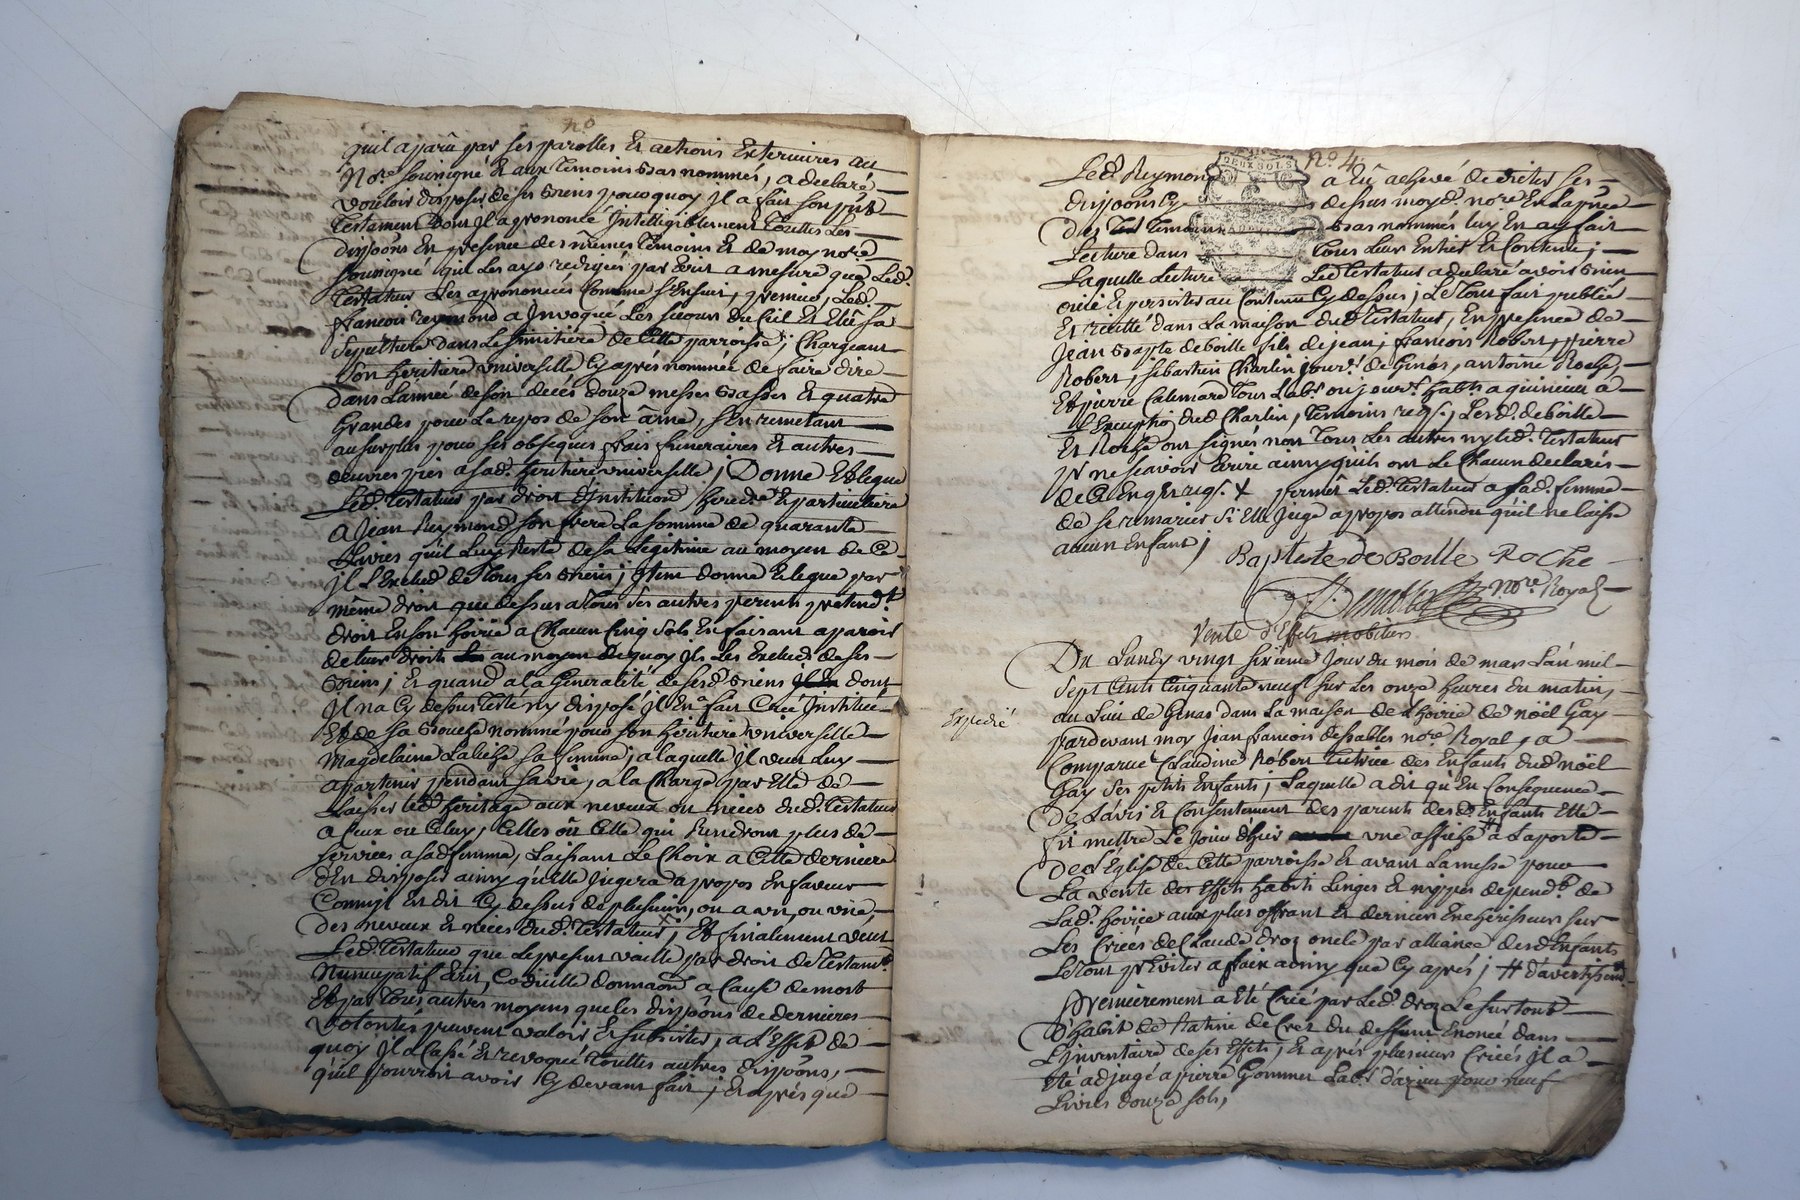 quil aparû par ses parolles Et actions Exterieures au
No.re soussigné Et aux temoins bas nommés, a declaré
vouloir disposer de ses biens pourquoy Il a fait son pnt
Testament dont Il a prononcé Intelligiblement toutes Les
dispôons En presence des mêmes temoins Et de moy no.re
soussigné qui Les ay redigées par Ecrit a mesure que Led.
Testateur Les a prononcées Comme s'Ensuit, premier, Led.
francois reymond a Invoqué Les secours du Ciel Et Elû sa
sepulture dans Le simitiere de Cette parroisse; Chargeant
son heritiere universelle Cy après nommée de faire dire
dans Lannée de son decés douze messes basses Et quatre
grandes pour Le repos de son âme, s'En remettant
au surplus pour ses obseques, frais funeraires Et autres
oeuvres pies a sad. heritiere universelle; Donne Et legue
Led. Testateur par droit d'Institution hered.re Et particuliere
a Jean Reymond son frere La somme de quarante
Livres qu'il Luy Reste de sa Legitime au moyen de Ce
Jl L'Exclud de tous ses biens; Jtem donne Et legue par
même droit que dessus a tous ses autres parents pretend.t
droit En son hoirie a Chacun Cinq sols En faisant aparoir
de leur droits au moyen de quoy Jls Les Exclud de ses
biens; Et quand a la Generalité de sesd. biens dont
Jl na Cy dessus testé ny disposé Jl En a fait Créé Jnstitué
Et de sa bouche nommé pour son heritiere universelle
Magdelaine Labieze sa femme, a laquelle Jl veut Luy
apartenir pendant sa vie, a la Charge par Elle de
Laisser led. heritage aux neveux ou nieces dud. Testateur
a Ceux ou Celuy, Celles oû Celle qui Rendront plus de
services a sad. femme, Laissant Le Choix a Cette derniere
d'En disposer ainsy qu'elle Jugera a propos En faveur
Comme Est dit Cy dessus de plusieurs, ou a un, ou une,
des neveux Et nieces dud. Testateur; x Et finalement veut
Led. Testateur que Le present vaille par droit de Testam.t
Nuncupatif Ecrit, Codicille donnaôn a Cause de mort
Et par tous autres moyens que les dispôons de dernieres
volontés peuvent valoir Et subsister, a L'Effet de
quoy Jl a Cassé Et revoqué Touttes autres dispôons,
quil pourroit avoir Cy devant fait; Et après que
n.o 4.
DEUX SOLS
Led. Reymond a Eû achevé de dicter ses
dispôons Cy dessus moyd. no.re En la pnce
des temoins bas nommés luy En au fait
Lecture dans tous Leur Entier Et Contenu;
Laquelle Lecture Led. Testateur a declaré avoir bien
ouie Et persister au Contenu Cy dessus; Le tout fait publié
Et recitté dans La maison dud. Testateur, En presence de
Jean Bapte deboille fils de jean, francois Robert, pierre
Robert, sebastien Charlin jour.r de Genas, antoine Roche,
Et pierre Calemard tous Lab.rs ou jour.rs habts a
L'Exception dud. Charlin, temoins reqs., Lesd. deboille
Et Roche ont signés non tous Les autres ny led. Testateur
pr ne scavoir Ecrire ainsy qu'ils ont Le Chacun declarés
de Ce Enquis reqs. x permet Led. Testateur a sad. femme
de se remarier si Elle Juge a propos attendu quil ne laisse
aucun Enfant;
Baptiste de Boille Roche
no.re Royal
Vente d'Effets mobiliers
Du Lundy vingt sixieme Jour du mois de mars L'an mil
sept Cents Cinquante neuf sur Les onze heures du matin,
Expedié
au Lieu de Genas dans La maison de L'hoirie de noël Gay
pardevant moy Jean francois desables no.re Royal, a
Comparue Claudine Robert Tutrice des Enfants dud. noël
Gay ses petits Enfants; Laquelle a dit qu'En Consequence
de L'avis Et Consentement des parents desd. Enfants Elle
fit mettre Le Jour d'hier une affiche # a La porte
de L'Eglise de Cette parroisse Et avant La messe pour
La vente des Effets habits Linges Et nippes depend.ts de
Lad. hoirie aux plus offrant Et dernier Encherisseur sur
Les Criées de Claude droz oncle par alliance desd. Enfants
Letout a Ete fait ainsy que Cy après; # d'avertissemt
premierement a Eté Crié par Led. droz Le surtout
d'habit de Ratine de du deffunt Enoncé dans
L'Inventaire de ses Effets; Et après plusieurs Criées Jl a
eté adjugé a pierre Gommet Lab.r d'azieu pour neuf
Livres douze sols,